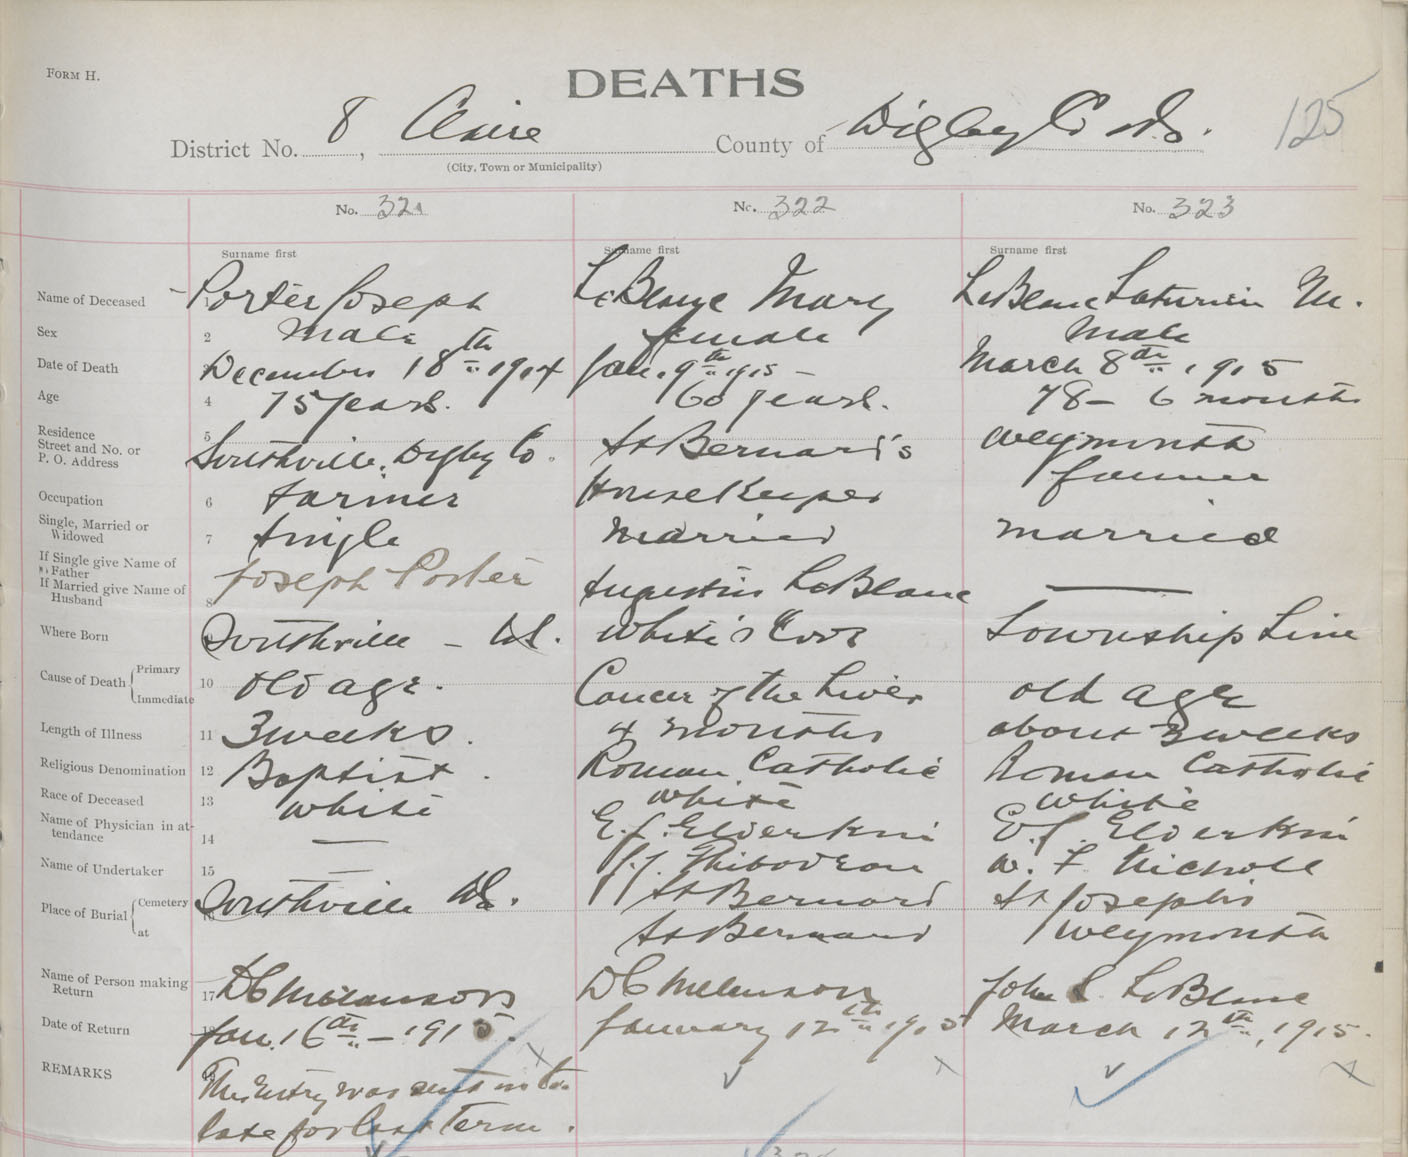 FORM H.
DEATHS
125
District No. 8, Clare County of Digby Co N.S.
(City, Town or Municipality)
No. 321 No. 322 No. 323
Surname first Surname first Surname first
Name of Deceased 1 Porter Joseph LeBlanc Mary LeBlanc Saturnin M.
Sex 2 Male female Male
Date of Death 3 December 18th 1914 Jan. 9th 1915 – March 8th, 1915
Age 4 75 years. 60 years. 78 – 6 months
Residence
Street and No. or
P. O. Address 5 Southville, Digby Co. St Bernard's Weymouth
Occupation 6 farmer House Keeper farmer
Single, Married or
Widowed 7 Single Married married
If Single give Name of
Father
If Married give Name of
Husband 8 Joseph Porter Augustin LeBlanc —
Where Born 9 Southville – N.S. White's Cove Township Line
Cause of Death { Primary
Immediate 10 Old age. Cancer of the Liver old age
Length of Illness 11 3 weeks. 4 months about 3 weeks
Religious Denomination 12 Baptist. Roman Catholic Roman Catholic
Race of Deceased 13 white white white
Name of Physician in at-
tendance 14 — E. J. Elderkin E. J. Elderkin
Name of Undertaker 15 — P. J. Thibodeau W. F. Nicholl
Place of Burial { Cemetery
at 16 Southville N.S. St Bernard St Joseph's
St Bernard Weymouth
Name of Person making
Return 17 D C Melanson D C Melanson John S. LeBlanc
Date of Return 18 Jan. 16th – 1915. January 12th 1915 March 12th, 1915.
REMARKS 19 This Entry was sent in too
late for last Term.